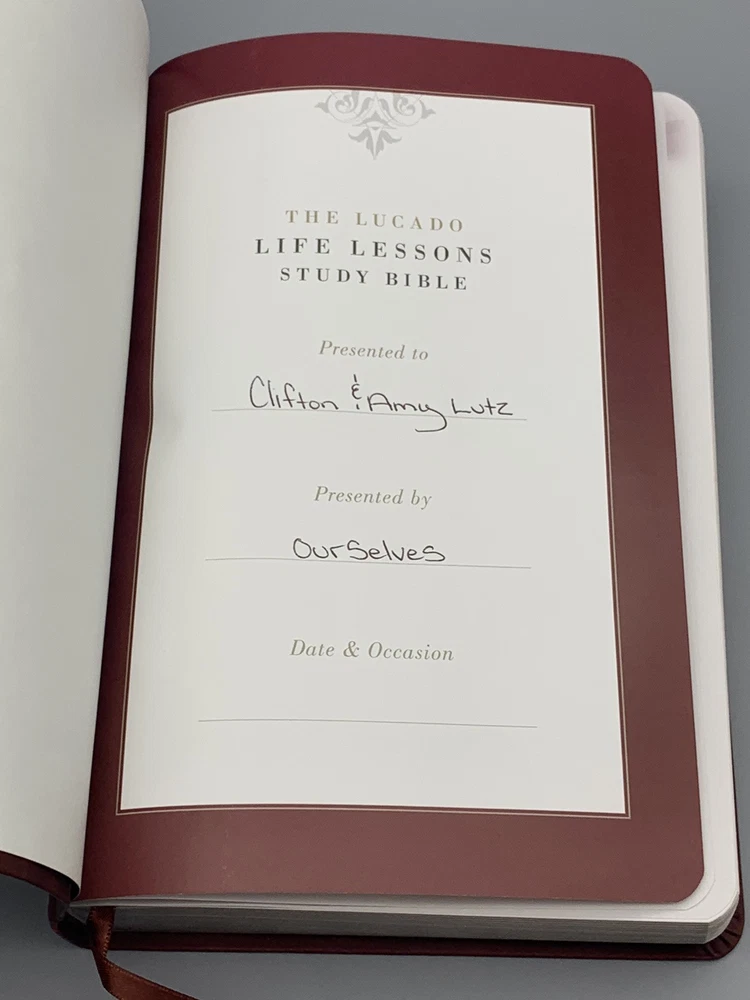 THE LUCADO
LIFE LESSONS
STUDY BIBLE
Presented to
Clifton & Amy Lutz
Presented by
OurSelves
Date & Occasion